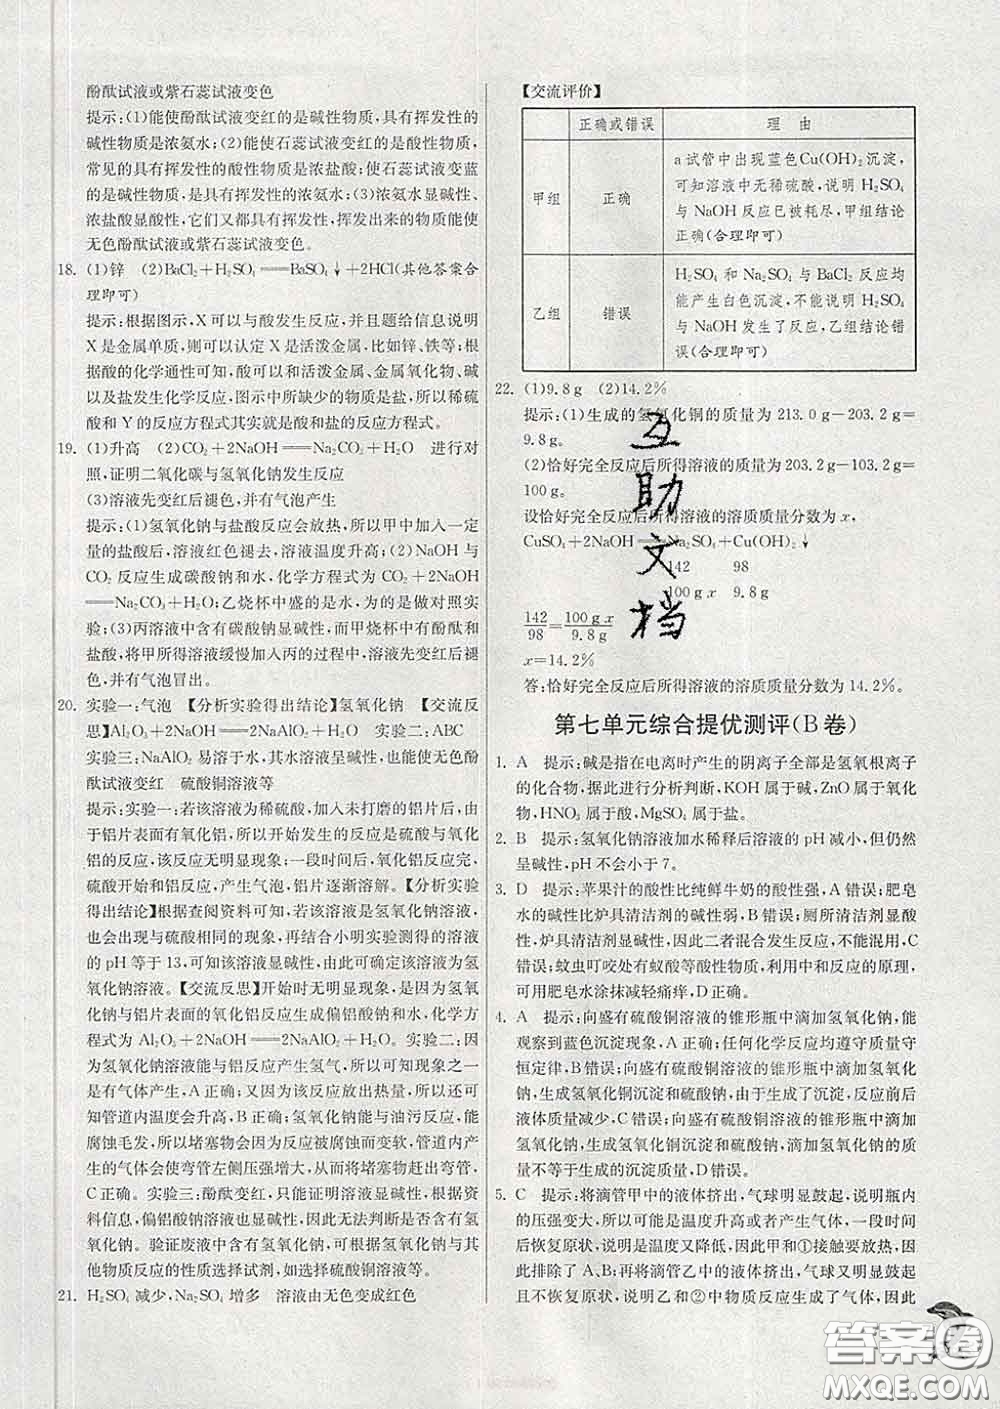 酚酞试液或紫石蕊试液变色
提示:(1)能使酚酞试液变红的是碱性物质,具有挥发性的
碱性物质是浓氨水;(2)能使石蕊试液变红的是酸性物质,
常见的具有挥发性的酸性物质是浓盐酸;使石蕊试液变蓝
的是碱性物质,是具有挥发性的浓氨水;(3)浓氨水显碱性、
浓盐酸显酸性,它们又都具有挥发性,挥发出来的物质能使
无色酚酞试液或紫石蕊试液变色。
18. (1)锌 (2)BaCl₂+H₂SO₄══BaSO₄↓+2HCl(其他答案合
理即可)
提示:根据图示,X 可以与酸发生反应,并且题给信息说明
X 是金属单质,则可以认定 X 是活泼金属,比如锌、铁等;根
据酸的化学通性可知,酸可以和活泼金属、金属氧化物、碱
以及盐发生化学反应,图示中所缺少的物质是盐,所以稀硫
酸和 Y 的反应方程式其实就是酸和盐的反应方程式。
19. (1)升高 (2)CO₂+2NaOH══Na₂CO₃+H₂O 进行对
照,证明二氧化碳与氢氧化钠发生反应
(3)溶液先变红后褪色,并有气泡产生
提示:(1)氢氧化钠与盐酸反应会放热,所以甲中加入一定
量的盐酸后,溶液红色褪去,溶液温度升高;(2)NaOH 与
CO₂ 反应生成碳酸钠和水,化学方程式为 CO₂+2NaOH
══Na₂CO₃+H₂O;乙烧杯中盛的是水,为的是做对照实
验;(3)丙溶液中含有碳酸钠显碱性,而甲烧杯中有酚酞和
盐酸,将甲所得溶液缓慢加入丙的过程中,溶液先变红后褪
色,并有气泡冒出。
20. 实验一:气泡 【分析实验得出结论】氢氧化钠 【交流反
思】Al₂O₃+2NaOH══2NaAlO₂+H₂O 实验二:ABC
实验三:NaAlO₂ 易溶于水,其溶液显碱性,也能使无色酚
酞试液变红 硫酸铜溶液等
提示:实验一:若该溶液为稀硫酸,加入未打磨的铝片后,由
于铝片表面有氧化铝,所以开始发生的反应是硫酸与氧化
铝的反应,该反应无明显现象;一段时间后,氧化铝反应完,
硫酸开始和铝反应,产生气泡,铝片逐渐溶解。【分析实验
得出结论】根据查阅资料可知,若该溶液是氢氧化钠溶液,
也会出现与硫酸相同的现象,再结合小明实验测得的溶液
的 pH 等于 13,可知该溶液显碱性,由此可确定该溶液为氢
氧化钠溶液。【交流反思】开始时无明显现象,是因为氢氧
化钠与铝片表面的氧化铝反应生成偏铝酸钠和水,化学方
程式为 Al₂O₃+2NaOH══2NaAlO₂+H₂O。实验二:因
为氢氧化钠溶液能与铝反应产生氢气,所以可知现象之一
是有气体产生,A 正确;又因为该反应放出热量,所以还可知
管道内温度会升高,B 正确;氢氧化钠能与油污反应,能
腐蚀毛发,所以堵塞物会因为反应而变软,管道内产生
的气体会使弯管左侧压强增大,从而将堵塞物赶出弯管,
C 正确。实验三:酚酞变红,只能证明溶液显碱性,根据资
料信息,偏铝酸钠溶液显碱性,因此无法判断是否含有氢
氧化钠。验证废液中含有氢氧化钠,可根据氢氧化钠与其
他物质反应的性质选择试剂,如选择硫酸铜溶液等。
21. H₂SO₄ 减少,Na₂SO₄ 增多 溶液由无色变成红色
【交流评价】
正确或错误 理 由
甲组 正确 a 试管中出现蓝色 Cu(OH)₂ 沉淀,
可知溶液中无稀硫酸,说明 H₂SO₄
与 NaOH 反应已被耗尽,甲组结论
正确(合理即可)
乙组 错误 H₂SO₄ 和 Na₂SO₄ 与 BaCl₂ 反应均
能产生白色沉淀,不能说明 H₂SO₄
与 NaOH 发生了反应,乙组结论错
误(合理即可)
22. (1)9.8 g (2)14.2%
提示:(1)生成的氢氧化铜的质量为 213.0 g-203.2 g=
9.8 g。
(2)恰好完全反应后所得溶液的质量为 203.2 g-103.2 g=
100 g。
设恰好完全反应后所得溶液的溶质质量分数为 x,
CuSO₄+2NaOH══Na₂SO₄+Cu(OH)₂↓
142 98
100 g x 9.8 g
142/98=100 g x/9.8 g
x=14.2%
答:恰好完全反应后所得溶液的溶质质量分数为 14.2%。
互
助
文
档
第七单元综合提优测评(B 卷)
1. A 提示:碱是指在电离时产生的阴离子全部是氢氧根离子
的化合物,据此进行分析判断,KOH 属于碱,ZnO 属于氧化
物,HNO₃ 属于酸,MgSO₄ 属于盐。
2. B 提示:氢氧化钠溶液加水稀释后溶液的 pH 减小,但仍然
呈碱性,pH 不会小于 7。
3. D 提示:苹果汁的酸性比纯鲜牛奶的酸性强,A 错误;肥皂
水的碱性比炉具清洁剂的碱性弱,B 错误;厕所清洁剂显酸
性,炉具清洁剂显碱性,因此二者混合发生反应,不能混用,C
错误;蚊虫叮咬处有蚁酸等酸性物质,利用中和反应的原理,
可用肥皂水涂抹减轻痛痒,D 正确。
4. A 提示:向盛有硫酸铜溶液的锥形瓶中滴加氢氧化钠,能
观察到蓝色沉淀现象,A 正确;任何化学反应均遵守质量守
恒定律,B 错误;向盛有硫酸铜溶液的锥形瓶中滴加氢氧化
钠,生成氢氧化铜沉淀和硫酸钠,由于生成了沉淀,反应前后
液体质量减少,C 错误;向盛有硫酸铜溶液的锥形瓶中滴加
氢氧化钠,生成氢氧化铜沉淀和硫酸钠,滴加氢氧化钠的质
量不等于生成的沉淀质量,D 错误。
5. C 提示:将滴管甲中的液体挤出,气球明显鼓起,说明瓶内
的压强变大,所以可能是温度升高或者产生气体,一段时间
后恢复原状,说明是温度又降低,因此甲和①接触要放热,因
此排除了 A、B;再将滴管乙中的液体挤出,气球又明显鼓起
且不恢复原状,说明乙和②中物质反应生成了气体,因此
答案圈
MXQE.COM